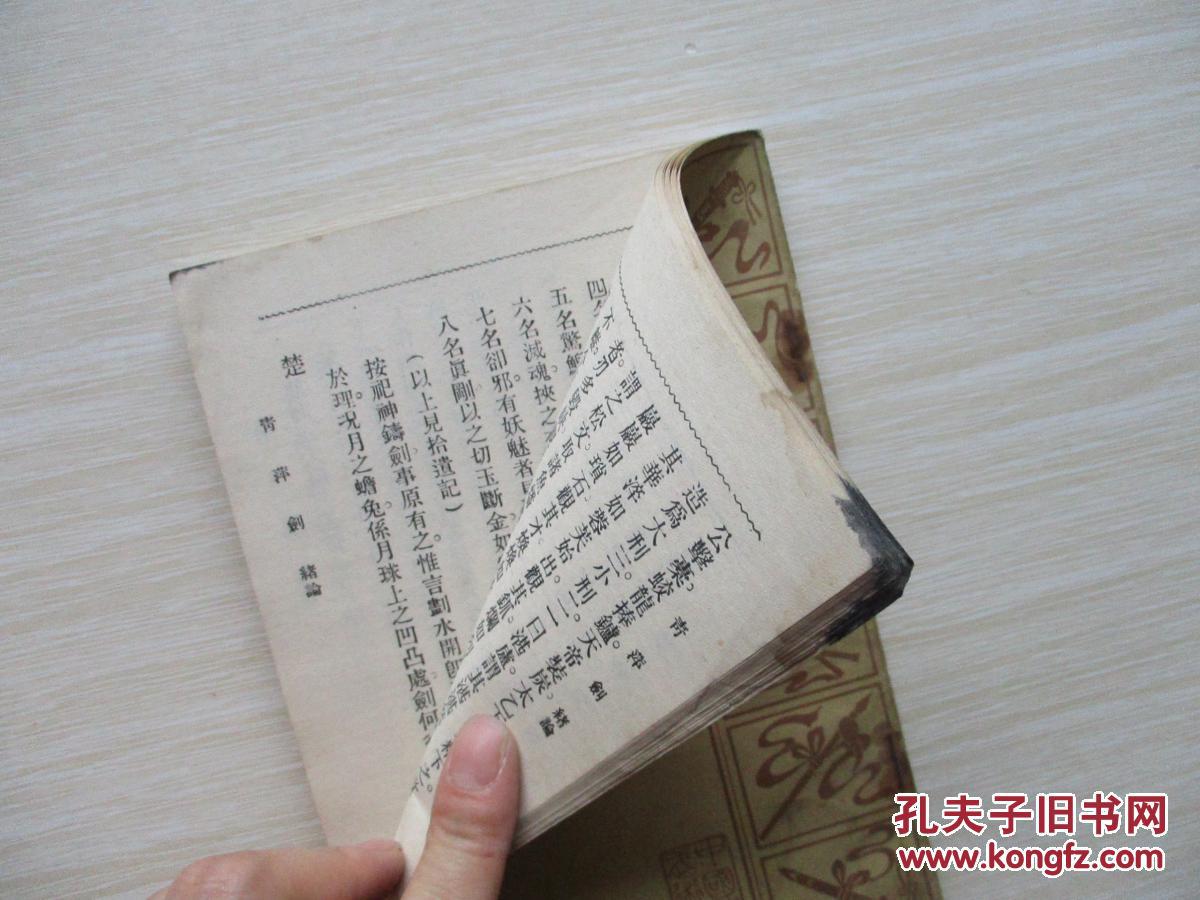 青萍劍 緒論
公擊橐。蛟龍捧鑪。天帝裝炭。太乙下
造爲大刑三小刑二一曰湛盧。謂其湛
其華淬如芙蓉始出。觀其釽
巖巖如瑣石觀其才煥煥
謂之松文取諸魚
者。刃多
不
四名
五名驚鯢
六名滅魂。挾之
七名卻邪。有妖魅者
八名眞剛。以之切玉斷金。如
(以上見拾遺記)
按祀神鑄劍事原有之。惟言劃水開卽
於理。況月之蟾兔係月球上之凹凸處。劍何
楚
青萍劍 緒論
孔夫子旧书网
www.kongfz.com